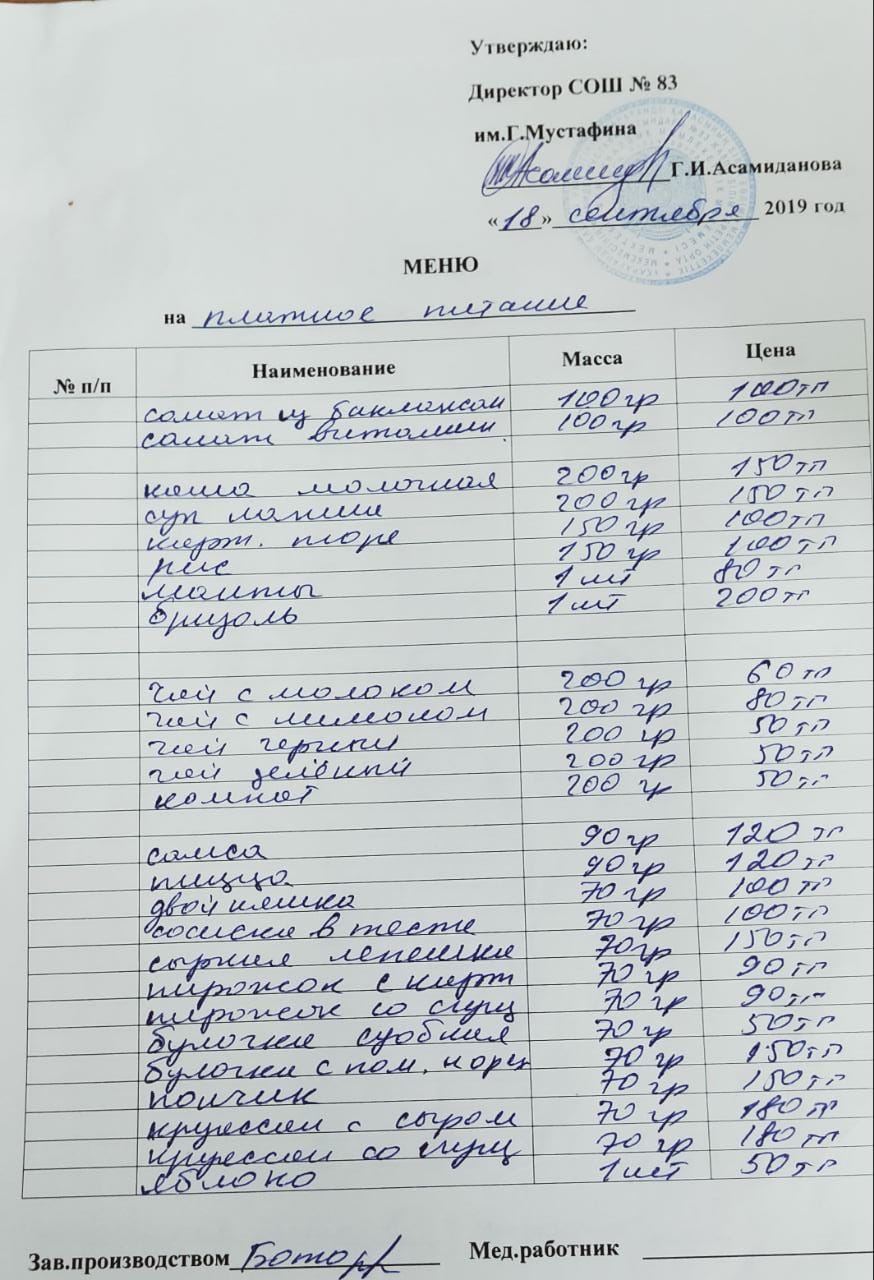 Утверждаю:
Директор СОШ № 83
им.Г.Мустафина
Г.И.Асамиданова
«18» сентября 2019 год
МЕНЮ
на платное питание
№ п/п Наименование Масса Цена
салат из баклажан 100 гр 100 тг
салат витамин 100 гр 100 тг
каша молочная 200 гр 150 тг
суп лапша 200 гр 150 тг
карт. пюре 150 гр 100 тг
рис 150 гр 100 тг
манты 1 шт 80 тг
бризоль 1 шт 200 тг
чай с молоком 200 гр 60 тг
чай с лимоном 200 гр 80 тг
чай черный 200 гр 50 тг
чай зелёный 200 гр 50 тг
компот 200 гр 50 тг
самса 90 гр 120 тг
пицца 90 гр 120 тг
двойняшка 70 гр 100 тг
сосиски в тесте 70 гр 100 тг
сырная лепешка 70 гр 150 тг
пирожок с карт 70 гр 90 тг
пирожок со сгущ 70 гр 90 тг
булочки сдобная 70 гр 50 тг
булочки с пом. и орех 70 гр 150 тг
пончик 70 гр 150 тг
круассан с сыром 70 гр 180 тг
круассан со сгущ 70 гр 180 тг
яблоко 1 шт 50 тг
Зав.производством Мед.работник